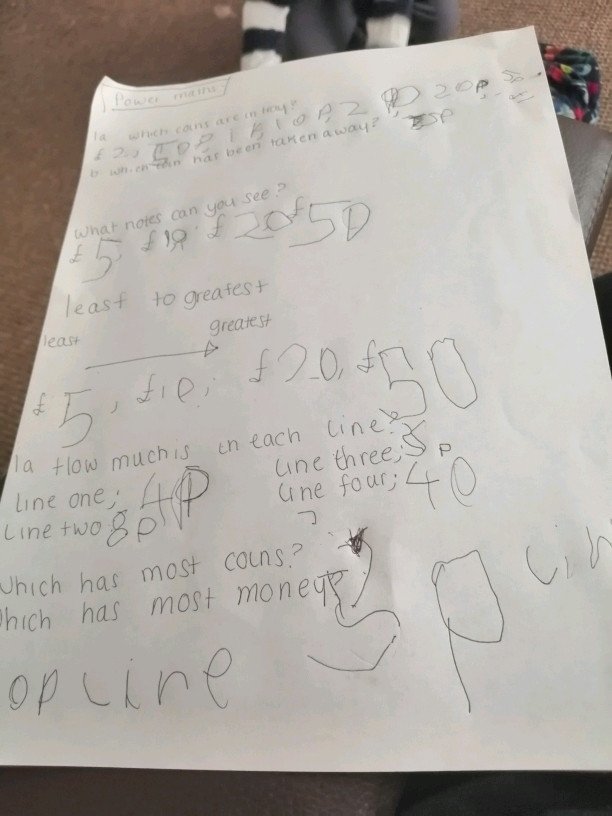 Power maths
1a which coins are in tray?
£2, 50P, 1P, 10P, 2P, 20P, 50
b which coin has been taken away? 5P
What notes can you see?
£5, £10, £20 £50
least to greatest
least greatest
£5, £10, £20, £50
1a How much is in each line?
line one; 4P line three; 5p
line two 8p line four; 40
Which has most coins?
Which has most money?
5p Lin
op Line